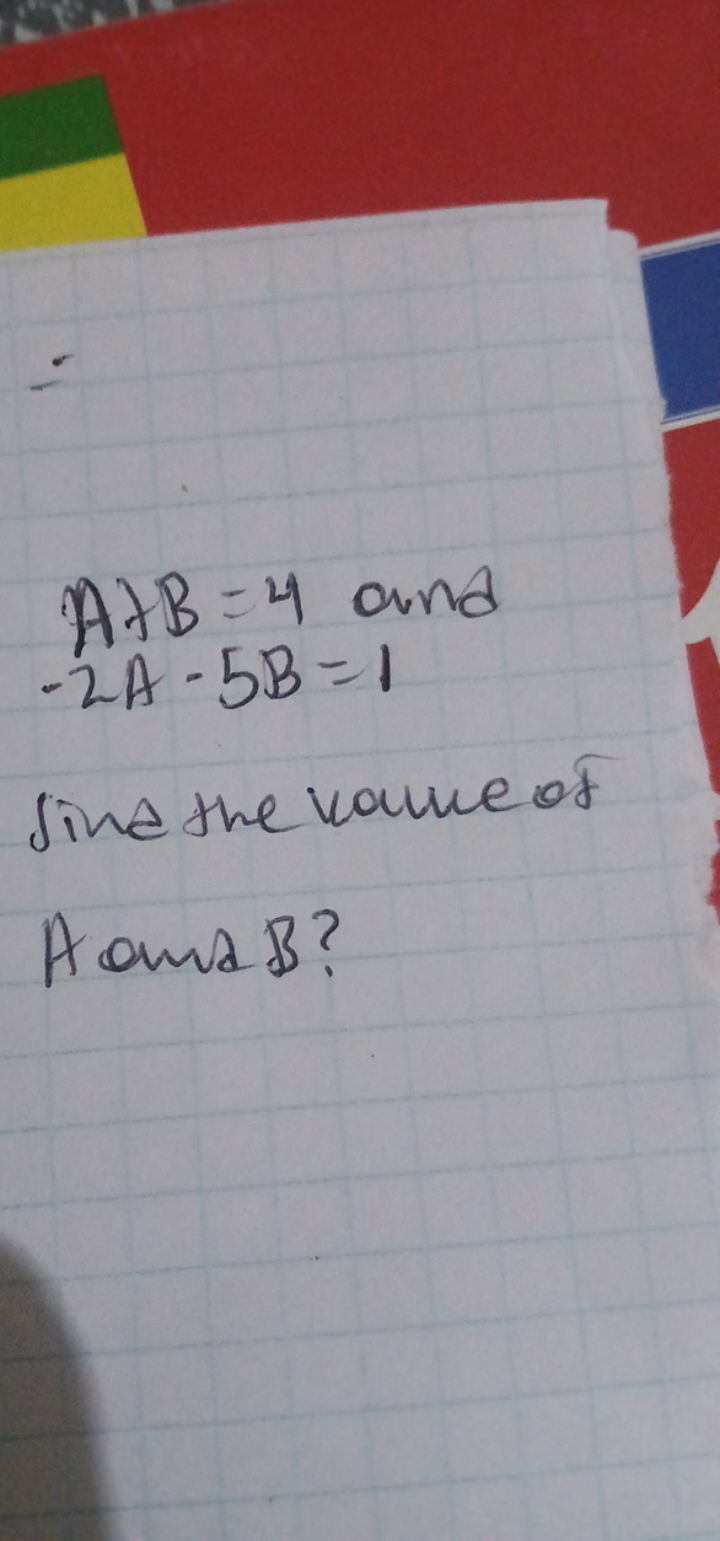 A+B=4 and
-2A-5B=1
find the value of
A and B?